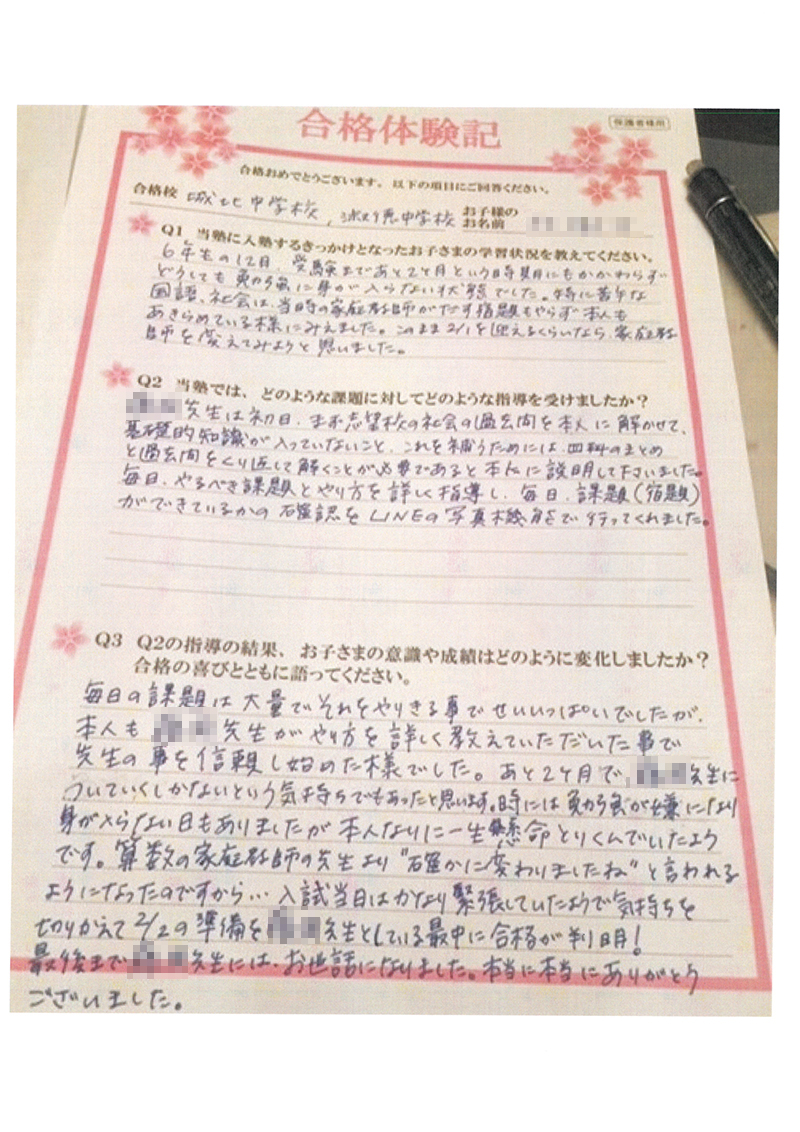 保護者様用
合格体験記
合格おめでとうございます。以下の項目にご回答ください。
合格校 城北中学校, 淑徳中学校 お子様のお名前
Q1 当塾に入塾するきっかけとなったお子さまの学習状況を教えてください。
6年生の12月、受験まであと2ヶ月という時期にもかかわらず
どうしても勉強に身が入らない状態でした。特に苦手な
国語、社会は、当時の家庭教師がだす指題もやらず本人も
あきらめている様にみえました。このまま2/1を迎えるくらいなら、家庭教
師を変えてみようと思いました。
Q2 当塾では、どのような課題に対してどのような指導を受けましたか？
先生は初日、第一志望校の社会の過去問を本人に解かせて、
基礎的知識が入っていないこと、これを補うためには、四科のまとめ
と過去問をくり返して解くことが必要であると本人に説明して下さいました。
毎日、やるべき課題とやり方を詳しく指導し、毎日、課題(宿題)
ができているかの確認をLINEの写真機能で行ってくれました。
Q3 Q2の指導の結果、お子さまの意識や成績はどのように変化しましたか？
合格の喜びとともに語ってください。
毎日の課題は大量でそれをやりきる事でせいいっぱいでしたが、
本人も 先生がやり方を詳しく教えていただいた事で
先生の事を信頼し始めた様でした。あと2ヶ月で、 先生に
ついていくしかないという気持ちでもあったと思います。時には勉強が嫌になり
身が入らない日もありましたが本人なりに一生懸命とりくんでいたよう
です。算数の家庭教師の先生より"確かに変わりましたね"と言われる
ようになったのですから… 入試当日はかなり緊張していたようで気持ちを
切りかえて2/2の準備を 先生としている最中に合格が判明!
最後まで 先生には、お世話になりました。本当に本当にありがとう
ございました。